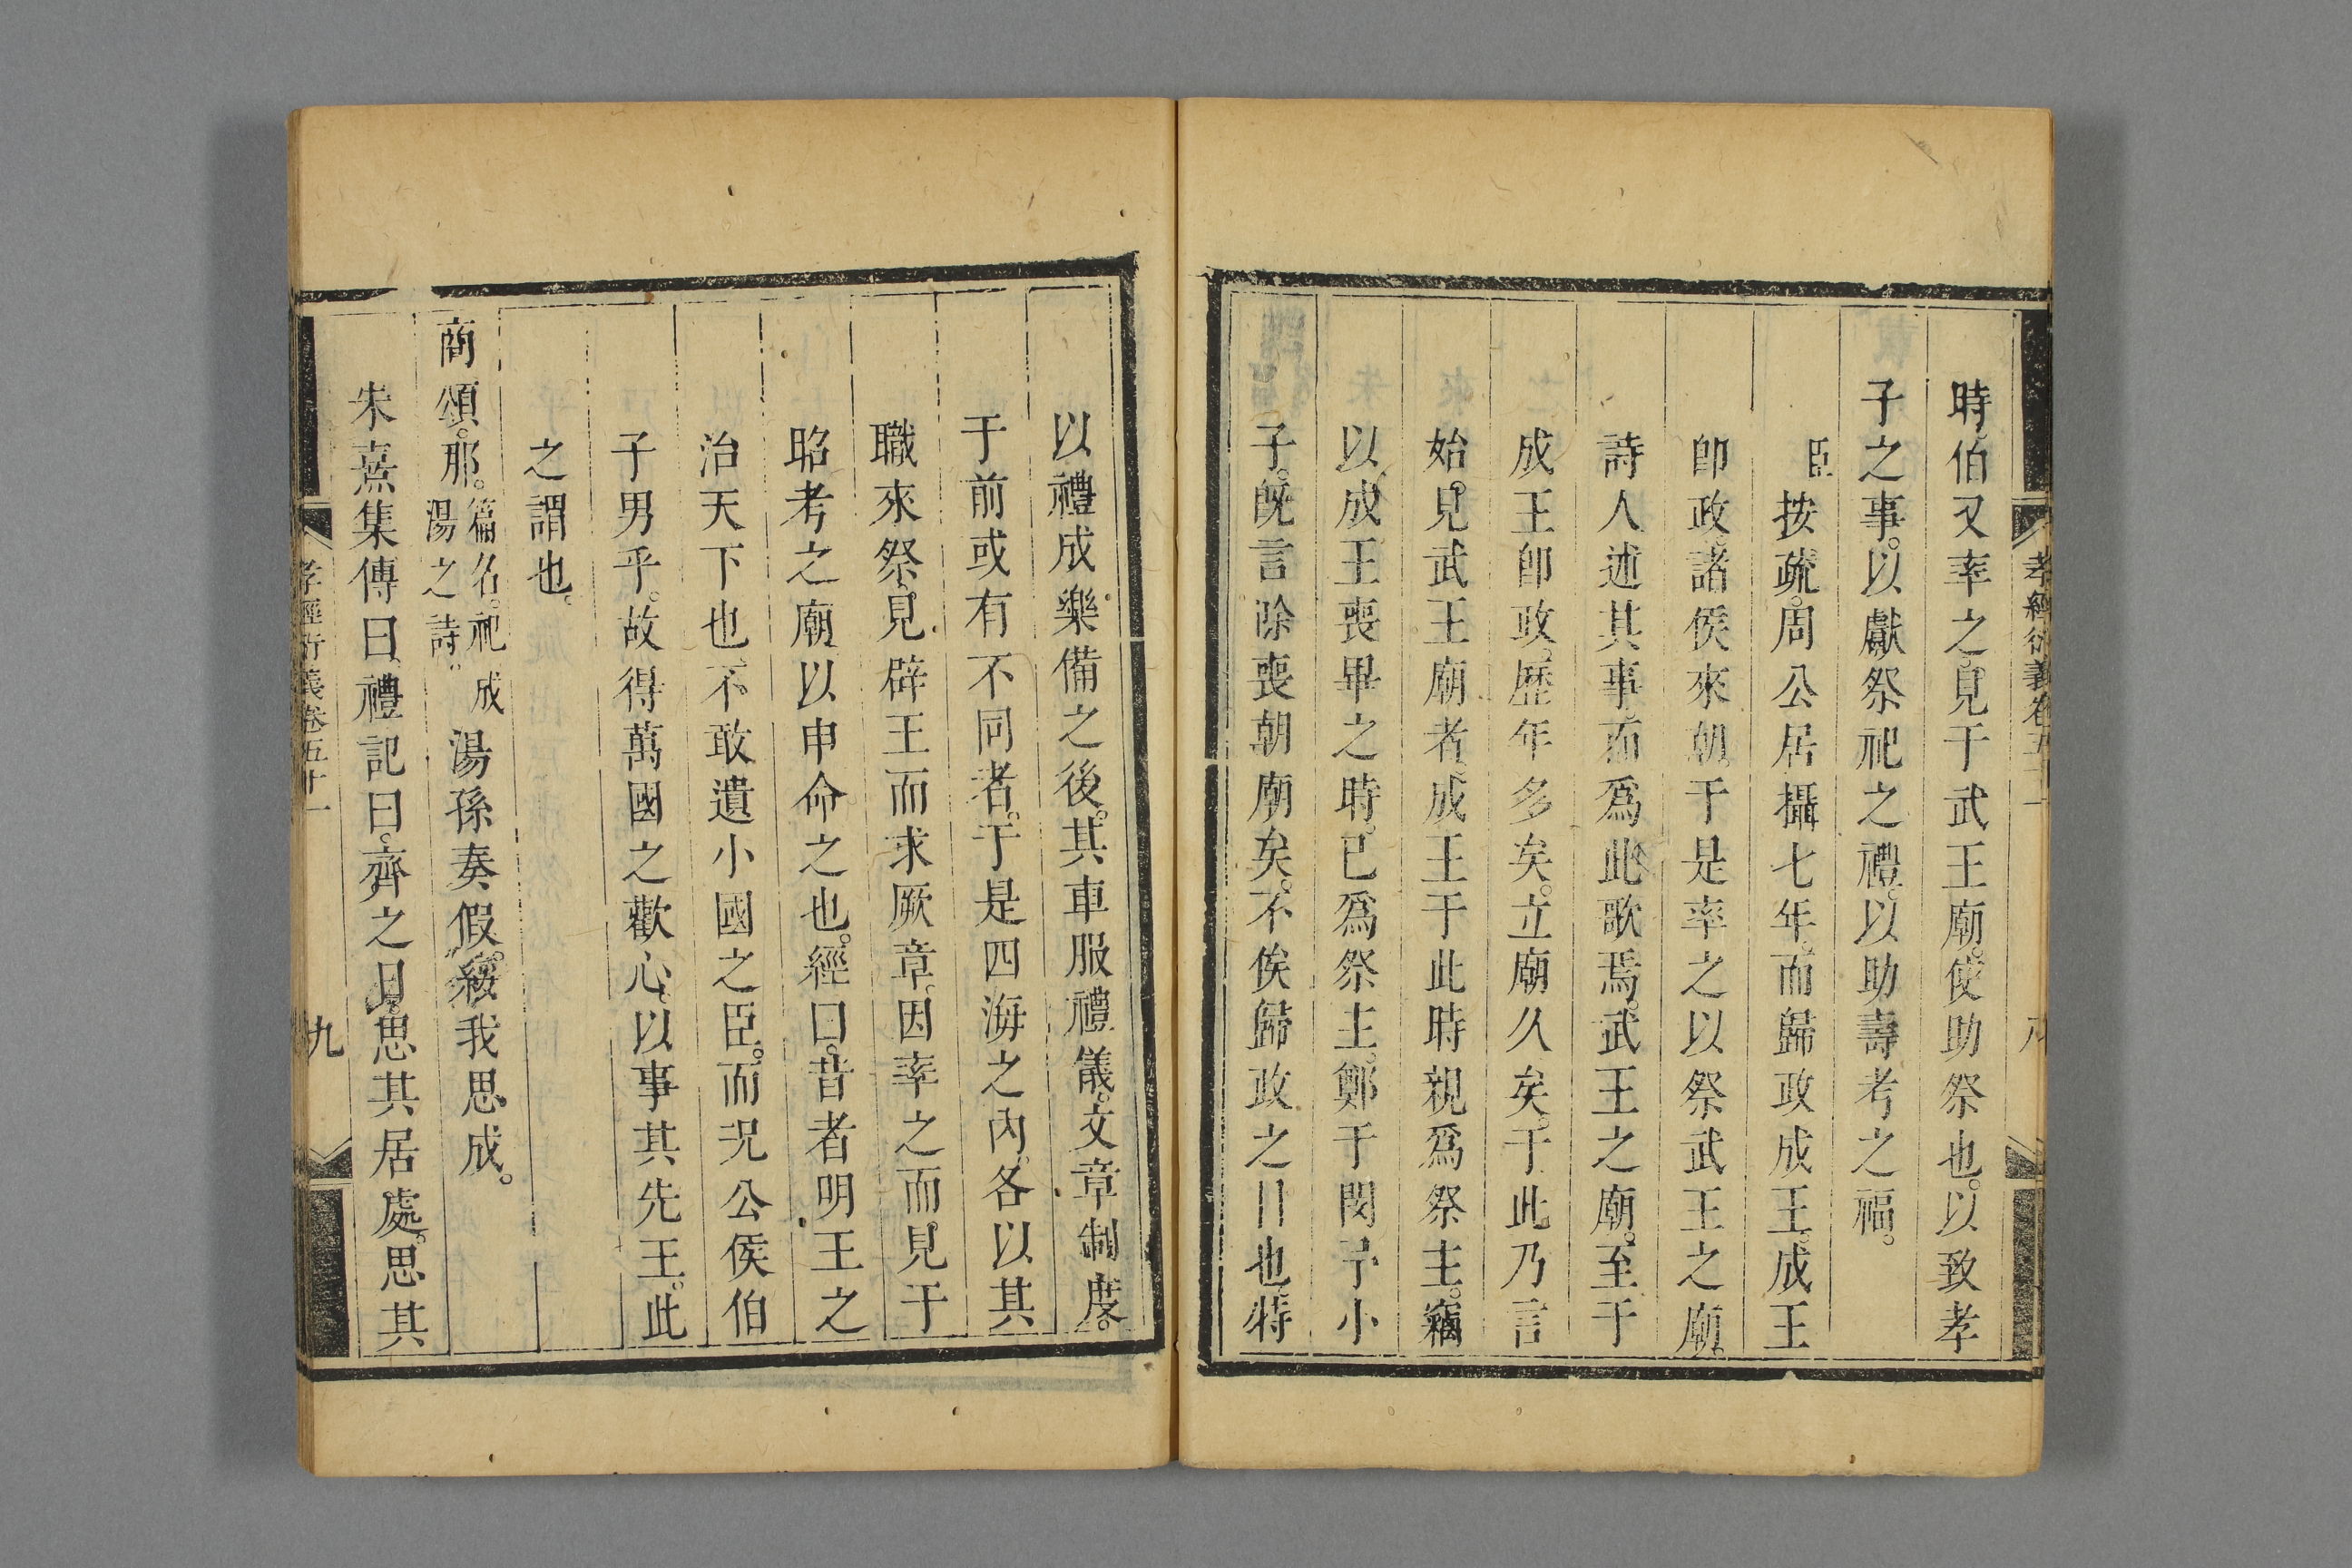 孝經衍義卷五十一 八
時伯又率之見于武王廟。使助祭也。以致孝
子之事。以獻祭祀之禮。以助壽考之福。
臣按疏。周公居攝七年。而歸政成王。成王
卽政。諸侯來朝。于是率之以祭武王之廟。
詩人述其事。而爲此歌焉。武王之廟。至于
成王卽政。歷年多矣。立廟久矣。于此乃言
始見武王廟者。成王于此時親爲祭主。竊
以成王喪畢之時。已爲祭主。鄭于閔予小
子。旣言除喪朝廟矣。不俟歸政之日也。特
以禮成樂備之後。其車服禮儀。文章制度。
于前或有不同者。于是四海之內。各以其
職來祭。見辟王而求厥章。因率之而見于
昭考之廟以申命之也。經曰。昔者明王之
治天下也。不敢遺小國之臣。而况公侯伯
子男乎。故得萬國之歡心。以事其先王。此
之謂也。
商頌。那。篇名。祀成湯之詩。湯孫奏假。綏我思成。
朱熹集傳曰。禮記曰。齊之日。思其居處。思其
孝經衍義卷五十一 九